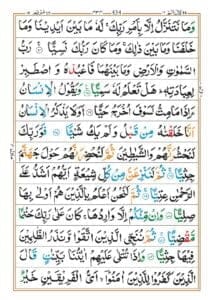 وَمَا نَتَنَزَّلُ اِلَّا بِاَمْرِ رَبِّكَ ۚ لَهٗ مَا بَيْنَ اَيْدِيْنَا وَمَا
خَلْفَنَا وَمَا بَيْنَ ذٰلِكَ ۚ وَمَا كَانَ رَبُّكَ نَسِيًّا ۚ رَبُّ
السَّمٰوٰتِ وَالْاَرْضِ وَمَا بَيْنَهُمَا فَاعْبُدْهُ وَ اصْطَبِرْ
لِعِبَادَتِهٖ ؕ هَلْ تَعْلَمُ لَهٗ سَمِيًّا ۚ وَيَقُوْلُ الْاِنْسَانُ
ءَاِذَا مَا مِتُّ لَسَوْفَ اُخْرَجُ حَيًّا ۚ اَوَلَا يَذْكُرُ الْاِنْسَانُ
اَنَّا خَلَقْنٰهُ مِنْ قَبْلُ وَلَمْ يَكُ شَيْئًا ۚ فَوَرَبِّكَ
لَنَحْشُرَنَّهُمْ وَالشَّيٰطِيْنَ ثُمَّ لَنُحْضِرَنَّهُمْ حَوْلَ جَهَنَّمَ
جِثِيًّا ۚ ثُمَّ لَنَنْزِعَنَّ مِنْ كُلِّ شِيْعَةٍ اَيُّهُمْ اَشَدُّ عَلَى
الرَّحْمٰنِ عِتِيًّا ۚ ثُمَّ لَنَحْنُ اَعْلَمُ بِالَّذِيْنَ هُمْ اَوْلٰى بِهَا
صِلِيًّا ۚ وَاِنْ مِّنْكُمْ اِلَّا وَارِدُهَا ۚ كَانَ عَلٰى رَبِّكَ حَتْمًا
مَّقْضِيًّا ۚ ثُمَّ نُنَجِّى الَّذِيْنَ اتَّقَوْا وَّنَذَرُ الظّٰلِمِيْنَ
فِيْهَا جِثِيًّا ۚ وَاِذَا تُتْلٰى عَلَيْهِمْ اٰيٰتُنَا بَيِّنٰتٍ قَالَ
الَّذِيْنَ كَفَرُوْا لِلَّذِيْنَ اٰمَنُوْٓا ۙ اَىُّ الْفَرِيْقَيْنِ خَيْرٌ